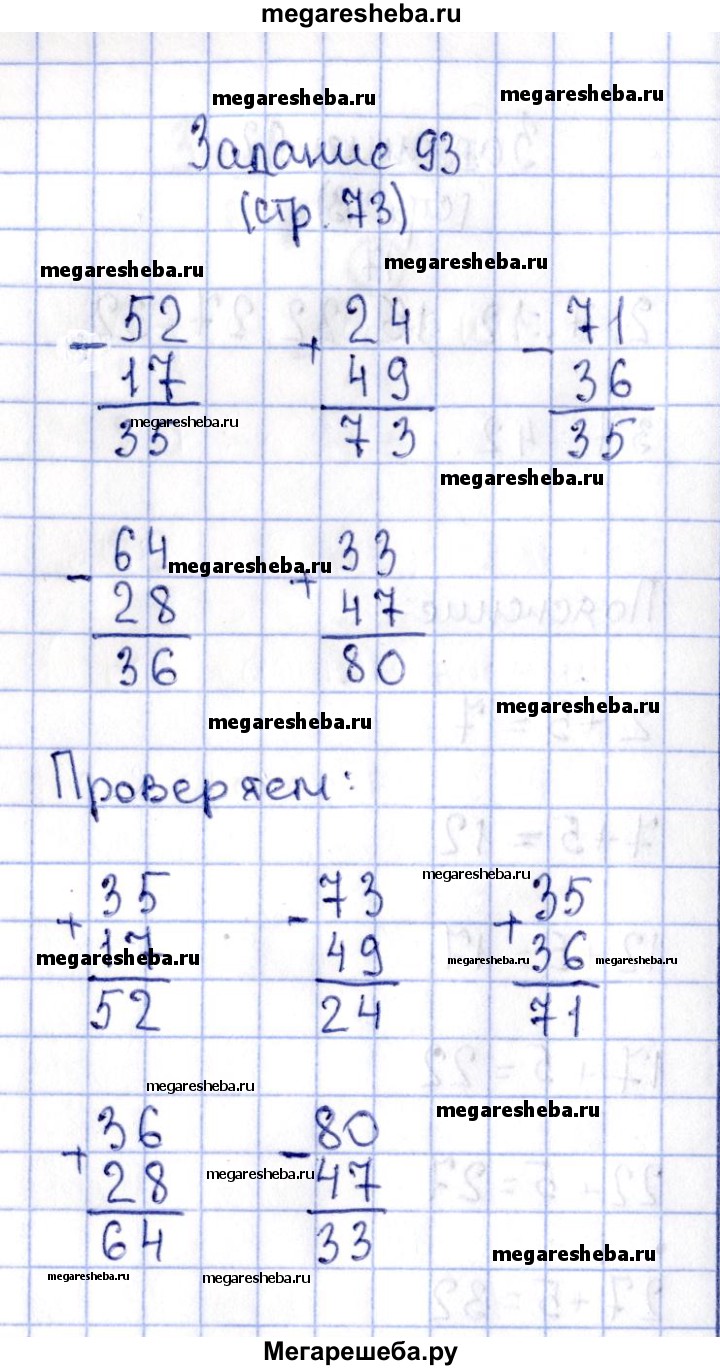 megaresheba.ru
megaresheba.ru megaresheba.ru
Задание 93
(стр. 73)
megaresheba.ru megaresheba.ru
- 52 + 24 - 71
17 49 36
megaresheba.ru
35 73 35
megaresheba.ru
- 64 + 33
megaresheba.ru
28 47
36 80
megaresheba.ru megaresheba.ru
Проверяем:
megaresheba.ru
+ 35 - 73 + 35
17 49 36
megaresheba.ru megaresheba.ru megaresheba.ru
52 24 71
megaresheba.ru
megaresheba.ru
+ 36 - 80
28 47
megaresheba.ru
64 33
megaresheba.ru
megaresheba.ru megaresheba.ru
Мегарешеба.ру